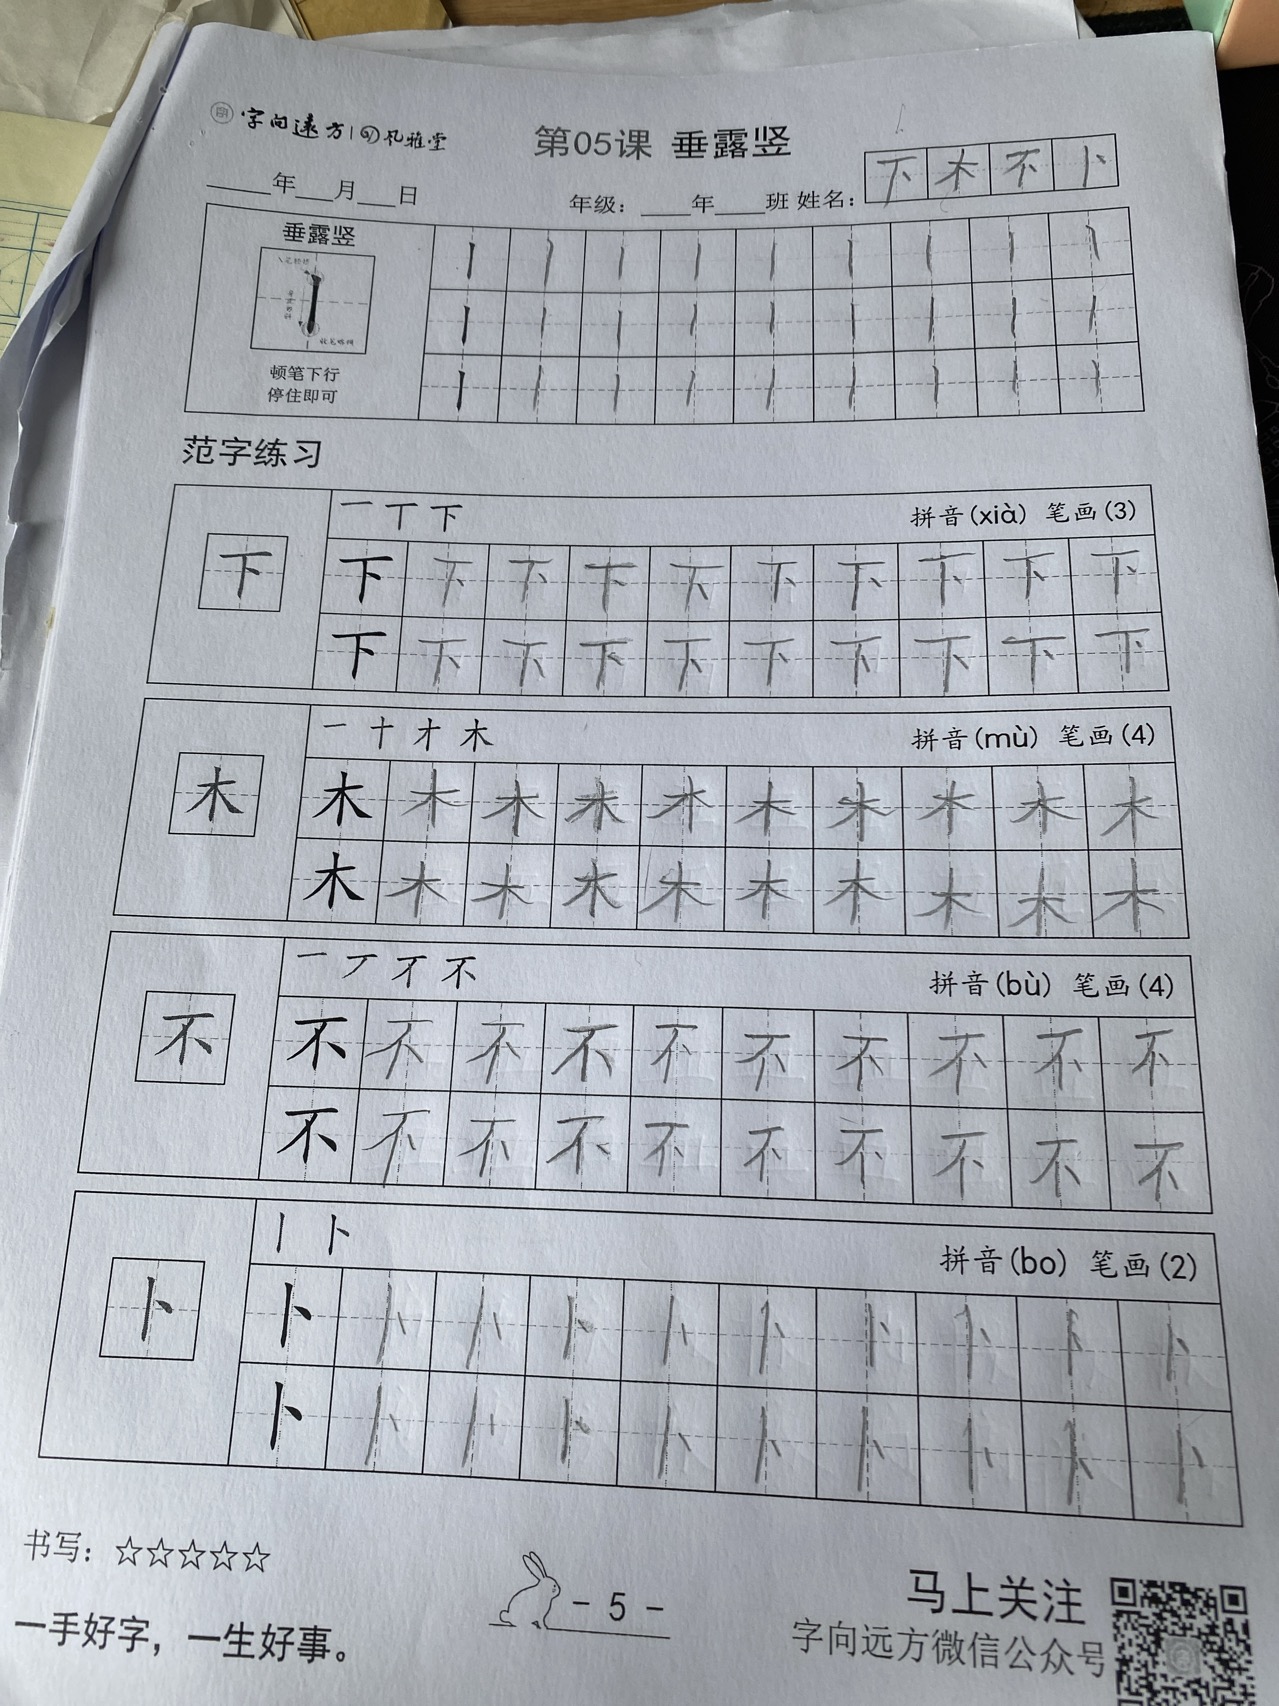 字向远方 | 风雅堂
第05课 垂露竖
____年___月___日
年级：____年____班 姓名：
下木不卜
垂露竖
顿笔下行
停住即可
范字练习
一 丅 下
拼音(xià) 笔画(3)
下 下 下 下 下 下 下 下 下 下 下
下 下 下 下 下 下 下 下 下 下
一 十 才 木
拼音(mù) 笔画(4)
木 木 木 木 木 木 木 木 木 木 木
木 木 木 木 木 木 木 木 木 木
一 丆 不
拼音(bù) 笔画(4)
不 不 不 不 不 不 不 不 不 不 不
不 不 不 不 不 不 不 不 不 不
丨 卜
拼音(bo) 笔画(2)
卜 卜 卜 卜 卜 卜 卜 卜 卜 卜 卜
卜 卜 卜 卜 卜 卜 卜 卜 卜 卜
书写：☆☆☆☆☆
- 5 -
马上关注
一手好字，一生好事。
字向远方微信公众号